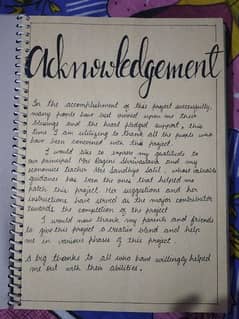 Acknowledgement
In the accomplishment of this project successfully,
many people have best owned upon me their
blessings and the heart pledged support, this
time I am utilizing to thank all the people who
have been concerned with this project.
I would like to express my gratitude to
our principal Mrs Ragini Shrivastava and my
economics teacher Mrs Sandhya Salil, whose valuable
guidance has been the ones that helped me
patch this project. Her suggestions and her
instructions have served as the major contributor
towards the completion of the project
I would now thank my parents and friends
to give this project a creative blend and help
me in various phases of this project.
A big thanks to all who have willingly helped
me out with their abilities.